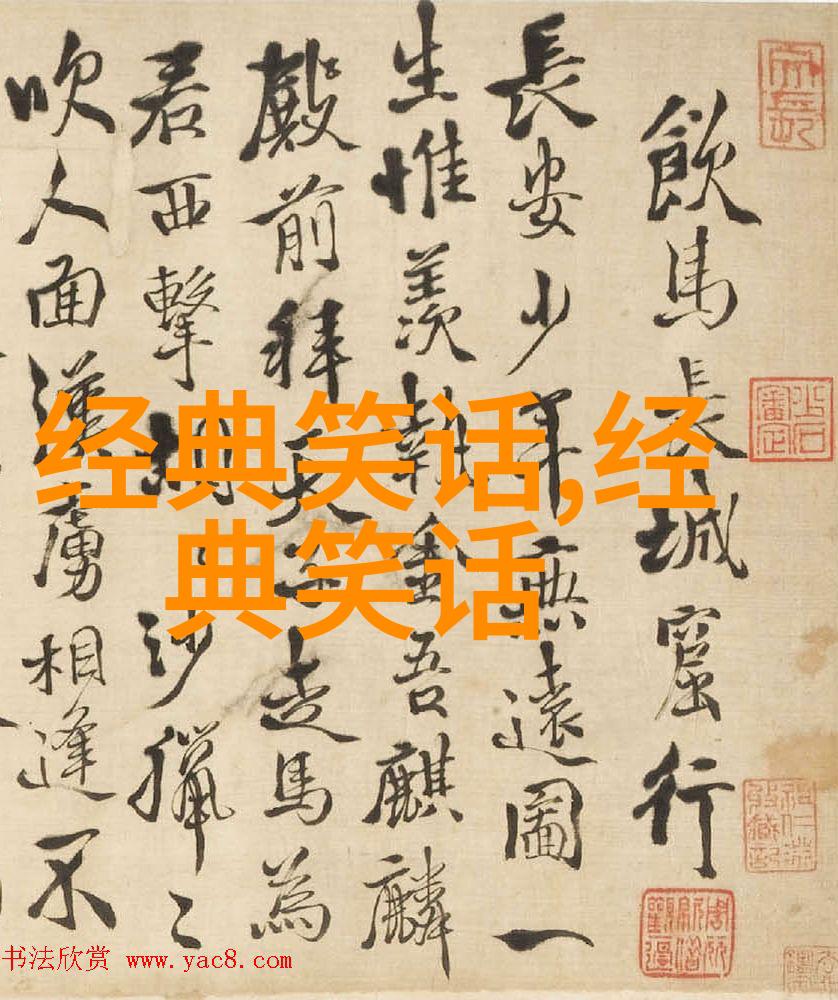 飲馬長城窟行
長安少年無遠圖一
生惟羨執金吾麒麟
殿前拜天子走馬為
君西擊胡〻沙獵〻
吹人面漢虜相逢不
经典笑话,经
典笑话
书法欣赏 www.yac8.com